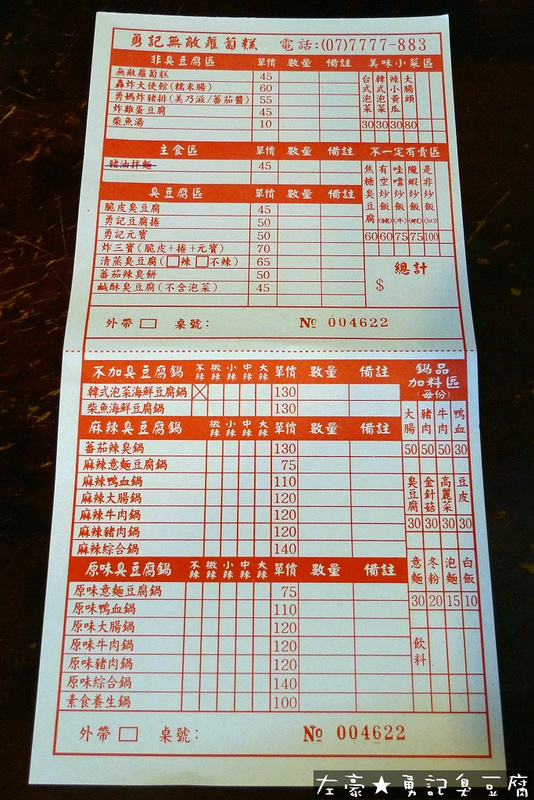 勇記無敵蘿蔔糕 電話:(07)7777-883
非臭豆腐區 單價 數量 備註
無敵蘿蔔糕 45
轟炸大使館(糯米腸) 60
勇媽炸豬排(美乃滋/蕃茄醬) 55
炸雞蛋豆腐 45
柴魚湯 10
美味小菜區
台式泡菜 30
韓式泡菜 30
辣小黃瓜 30
大腸頭 80
主食區 單價 數量 備註
豬油拌麵 45
不一定有賣區
焦糖臭豆腐 60
有空炒飯(豬) 60
哇噹炒飯(牛) 75
隴蝦炒飯(蝦) 75
是非炒飯 100
臭豆腐區 單價 數量 備註
脆皮臭豆腐 45
勇記豆腐捲 50
勇記元寶 50
炸三寶(脆皮+捲+元寶) 70
清蒸臭豆腐(□辣□不辣) 65
蕃茄辣臭餅 50
鹹酥臭豆腐(不含泡菜) 45
總計
$
外帶 □ 桌號: № 004622
不加臭豆腐鍋 不辣 微辣 小辣 中辣 大辣 單價 數量 備註
韓式泡菜海鮮豆腐鍋 130
柴魚海鮮豆腐鍋 130
麻辣臭豆腐鍋 微辣 小辣 中辣 大辣 單價 數量 備註
蕃茄辣臭鍋 130
麻辣意麵豆腐鍋 75
麻辣鴨血鍋 110
麻辣大腸鍋 120
麻辣牛肉鍋 120
麻辣豬肉鍋 120
麻辣綜合鍋 140
原味臭豆腐鍋 不辣 微辣 小辣 中辣 大辣 單價 數量 備註
原味意麵豆腐鍋 75
原味鴨血鍋 110
原味大腸鍋 120
原味牛肉鍋 120
原味豬肉鍋 120
原味綜合鍋 140
素食養生鍋 100
鍋品
加料區
(每份)
大腸 50
豬肉 50
牛肉 50
鴨血 30
臭豆腐 30
金針菇 30
高麗菜 30
豆皮 30
意麵 30
冬粉 20
泡麵 15
白飯 10
飲料
外帶 □ 桌號: № 004622
左豪★勇記臭豆腐